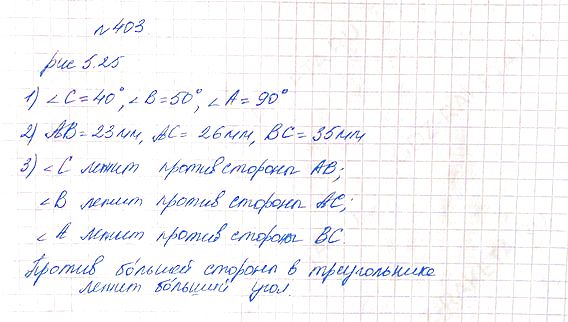 №403.
рис 5.25
1) ∠C = 40°, ∠B = 50°, ∠A = 90°
2) AB = 23мм, AC = 26мм, BC = 35мм
3) ∠C лежит против стороны AB;
∠B лежит против стороны AC;
∠A лежит против стороны BC.
Против бо́льшей стороны в треугольнике
лежит бо́льший угол.